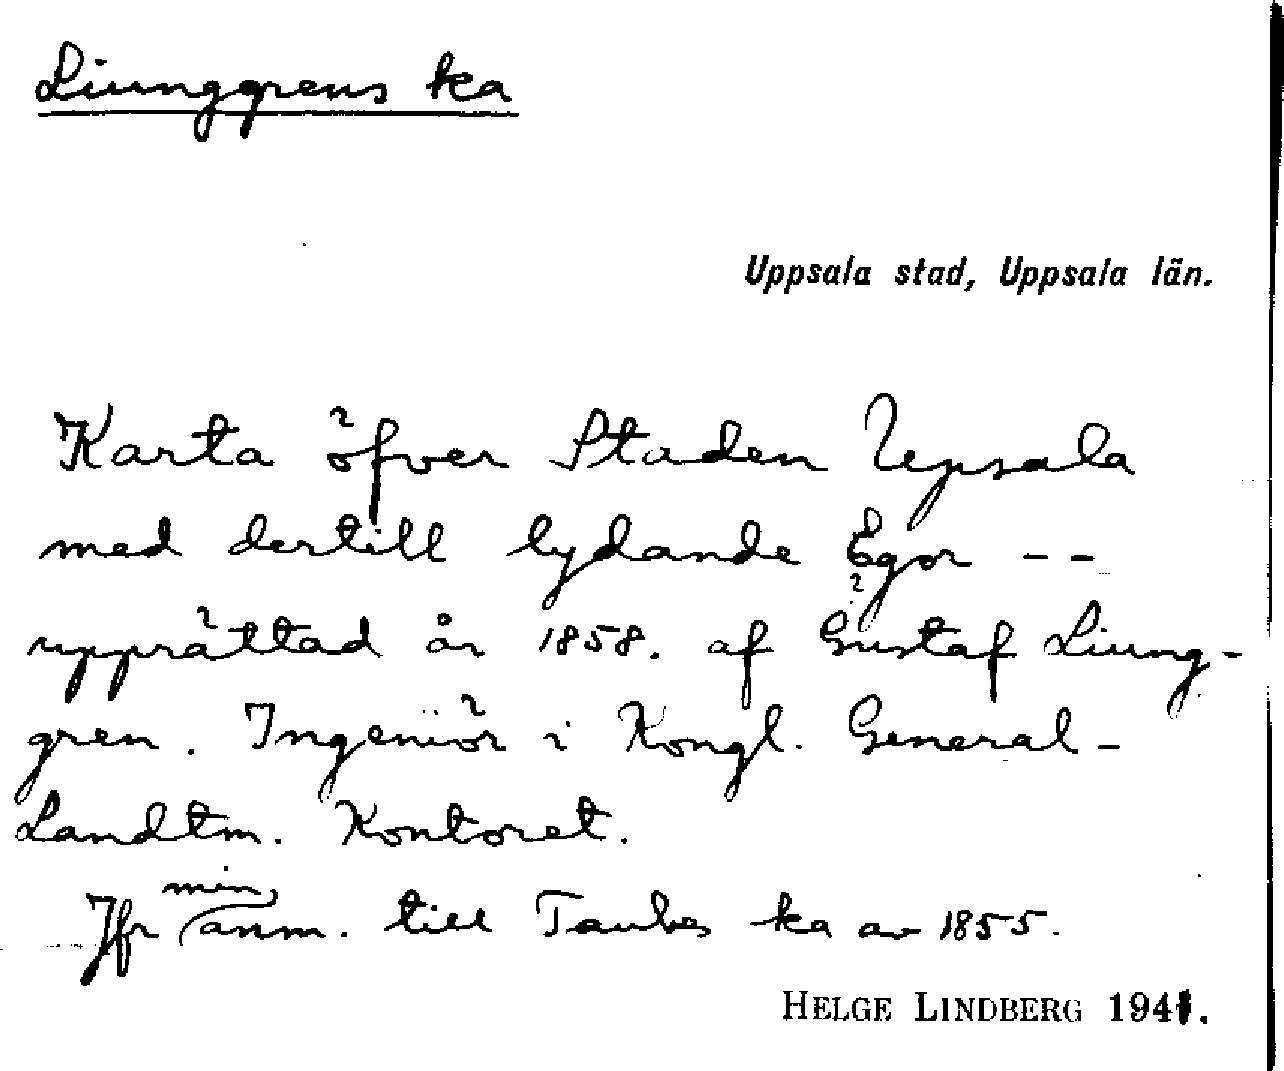 Liunggrens ka
Uppsala stad, Uppsala län.
Karta öfver Staden Upsala
med dertill lydande Egor --
upprättad år 1858. af Gustaf Liung-
gren. Ingeniör i Kongl. General-
Landtm. Kontoret.
Jfr min anm. till Taubes ka av 1855.
HELGE LINDBERG 1941.